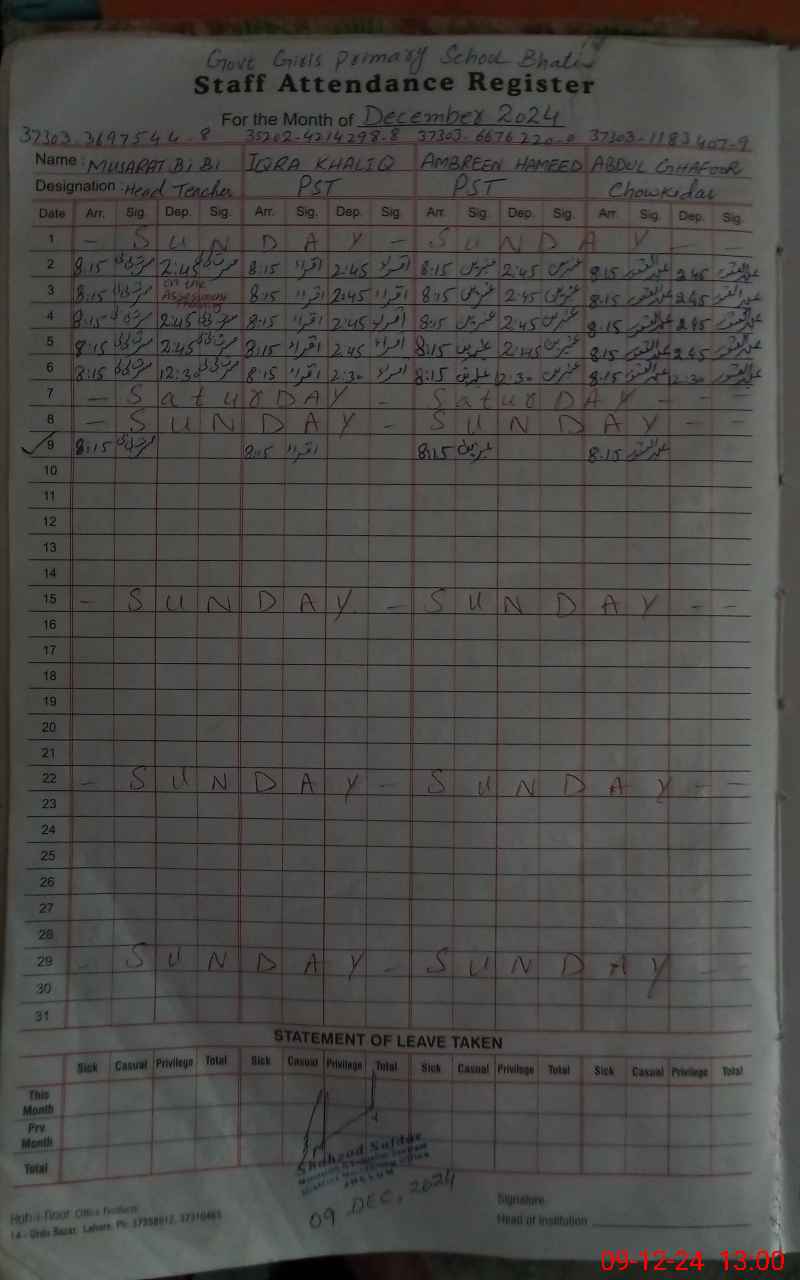 Govt Girls Primary School Bhatia
Staff Attendance Register
For the Month of December 2024
37303-3697544-8 35202-4214298-8 37303-6676220-0 37303-1183407-9
Name: MUSARAT BiBi IQRA KHALIQ AMBREEN HAMEED ABDUL GHAFOOR
Designation: Head Teacher PST PST Chowkidar
Date Arr. Sig. Dep. Sig. Arr. Sig. Dep. Sig. Arr. Sig. Dep. Sig. Arr. Sig. Dep. Sig.
1 - SUNDAY - SUNDAY - -
2 8:15 مسرت بی بی 2:45 مسرت بی بی 8:15 اقراء 2:45 اقراء 8:15 عنبرین 2:45 عنبرین 8:15 عبدالغفور 2:45 عبدالغفور
3 8:15 مسرت بی بی on the Assessment 8:15 اقراء 2:45 اقراء 8:15 عنبرین 2:45 عنبرین 8:15 عبدالغفور 2:45 عبدالغفور
4 8:15 مسرت بی بی 2:45 مسرت بی بی 8:15 اقراء 2:45 اقراء 8:15 عنبرین 2:45 عنبرین 8:15 عبدالغفور 2:45 عبدالغفور
5 8:15 مسرت بی بی 2:45 مسرت بی بی 8:15 اقراء 2:45 اقراء 8:15 عنبرین 2:45 عنبرین 8:15 عبدالغفور 2:45 عبدالغفور
6 8:15 مسرت بی بی 12:30 مسرت بی بی 8:15 اقراء 2:30 اقراء 8:15 عنبرین 12:30 عنبرین 8:15 عبدالغفور 12:30 عبدالغفور
7 - SaturDAY - SaturDAY - - -
8 - SUNDAY - SUNDAY - -
9 8:15 مسرت بی بی 8:15 اقراء 8:15 عنبرین 8:15 عبدالغفور
10
11
12
13
14
15 - SUNDAY - SUNDAY - -
16
17
18
19
20
21
22 - SUNDAY - SUNDAY - -
23
24
25
26
27
28
29 - SUNDAY - SUNDAY -
30
31
STATEMENT OF LEAVE TAKEN
Sick Casual Privilege Total Sick Casual Privilege Total Sick Casual Privilege Total Sick Casual Privilege Total
This Month
Prv Month
Total
Shahzad Safdar
JHELUM
09 DEC, 2024
Office Products
14 - Urdu Bazar, Lahore. Ph: 37358912, 37310463
Signature
Head of Institution
09-12-24 13.00